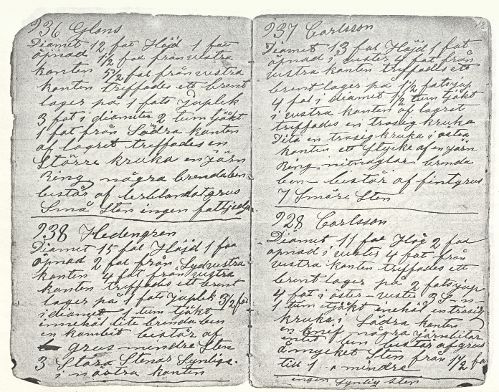 236 Glans
Diamet 12 fot Höjd 1 fot
öpnad 1/2 fot från västra
kanten 5 1/2 fot från västra
kanten träffades ett brent
lager på 1 fots juplek
3 fot i diameter 2 tum tjokt
1 fot från Södra kanten
af lagret träffades en
Större kruka en järn
Ring några brendaben
består af
Små Sten ingen
238 Hedengren
Diamet 15 fot Höjd 1 fot
öpnad 2 fot från Sydvästra
kanten 4 fot från västra
kanten träffades ett brent
lager på 1 fots juplek 3 1/2 fot
i diamet 1 tum tjokt
inehöl lite brendaben
en består af
grus mindre Sten
3 Stora Stenar Synliga
i östra kanten
237 Carlsson
Diamet 13 fot Höjd 1 fot
öpnad i väster 4 fot från
västra kanten träffades ett
brent lager på 1/2 fots jup
4 fot i diamet 1/2 tum tjokt
i västra kanten af lagret
träffades en trasig kruka
en trasig kruka i östra
kanten ett stycke af en järn
Ring brenda
ben består af fint grus
7 Smärre Sten
228 Carlsson
Diamet 11 fot Hög 2 fot
öpnad i väster 4 fot från
västra kanten träffades ett
brent lager på 2 fots jup
4 fot i öster väster 2 S n
tum tjokt inehöl en trasig
kruka i Södra kanten
en knif några järnbitar
ben består af grus
mycket Sten från 1 1/2 fot
till 1 o mindre
ingen Synlig Sten